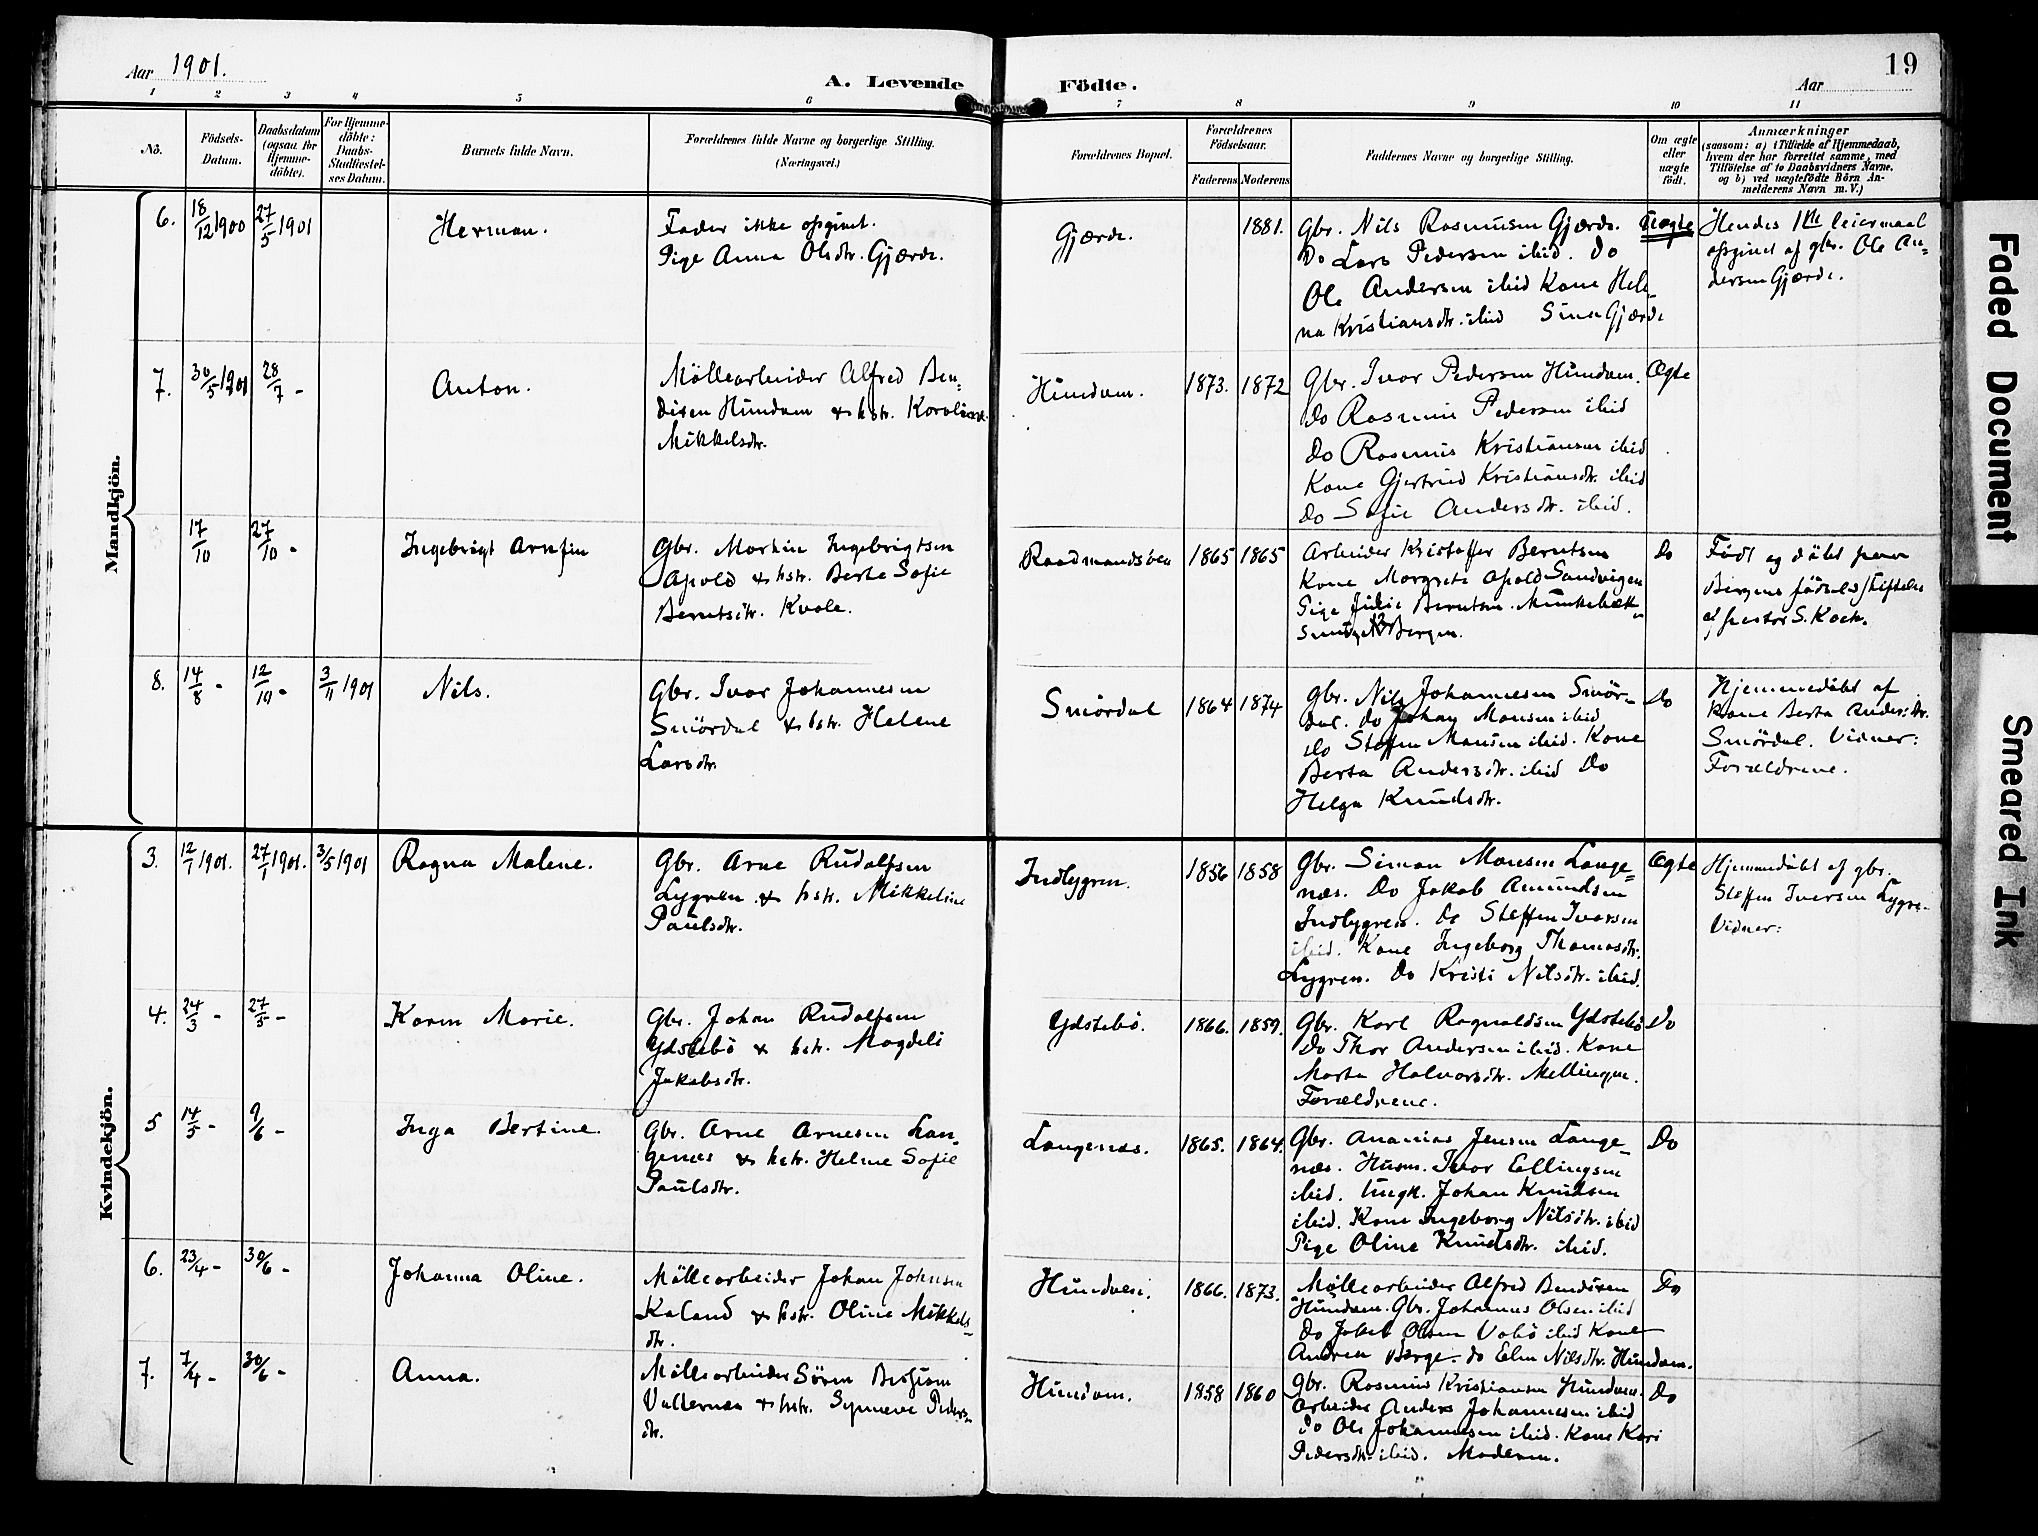 Aar 1901.
A. Levende
Födte.
Aar
19
1 2 3 4 5 6 7 8 9 10 11
No.
Födsels-
Datum.
Daabsdatum
(ogsaa for
Hjemme-
döbte).
For Hjemme-
döbte:
Daabs-
Stadfæstel-
ses Datum.
Barnets fulde Navn.
Forældrenes fulde Navne og borgerlige Stilling.
(Næringsvei.)
Forældrenes Bopæl.
Forældrenes
Födselsaar.
Faderens Moderens
Faddernes Navne og borgerlige Stilling.
Om ægte
eller
uægte
födt.
Anmærkninger
(saasom: a) i Tilfælde af Hjemmedaab,
hvem der har forrettet samme, med
Tilföielse af to Daabsvidners Navne,
og b) ved uægtefödte Börn An-
melderens Navn m. V.)
Mandkjön.
6.
18/12 1900
27/5 1901
Herman.
Fader ikke opgivet.
Pige Anna Olsdtr. Gjærde.
Gjærde.
1881.
Gbr. Nils Rasmusen Gjærde.
Do Lars Pedersen ibid. Do
Ole Andersen ibid Kone Hele-
na Kristiansdtr. ibid Sina Gjærde
Uægte
Hendes 1ste leiermaal
opgivet af gbr. Ole An-
dersen Gjærde.
7.
30/5 1901
28/7 -
Anton.
Möllearbeider Alfred Ben-
dixen Hundven & hstr. Karoline
Mikkelsdtr.
Hundven.
1873. 1872
Gbr. Ivar Pedersen Hundven.
Do Rasmus Pedersen ibid
Do Rasmus Kristiansen ibid
Kone Gjertrud Kristiansdtr. ibid
Do Sofie Andersdtr. ibid.
Ægte
17/10
27/10 -
Ingebrigt Arnfin
Gbr. Martin Ingebrigtsen
Apold & hstr. Berte Sofie
Berntsdtr. Kvale.
Raadmandsöen
1865 1865
Arbeider Kristoffer Berntsen
Kone Margrete Apold Sandvigen
Pige Julie Berntsen Munkebæk-
Bergen.
Do
Födt og döbt paa
Bergens födselsstiftelse
af pastor S. Koch.
8.
14/8 -
12/10 -
3/11 1901
Nils.
Gbr. Ivar Johannesen
Smördal & hstr. Helene
Larsdtr.
Smördal
1864 1874
Gbr. Nils Johannesen Smör-
dal. Do Johan Monsen ibid
Do Steffen Monsen ibid. Kone
Berta Andersdtr. ibid Do
Helga Knudsdtr.
Do
Hjemmedöbt af
Kone Berta Andersdtr.
Smördal. Vidner:
Forældrene.
Kvindekjön.
3.
12/1 1901.
27/1 1901.
3/5 1901
Ragna Malene.
Gbr. Arne Rudolfsen
Lygren & hstr. Mikkeline
Paulsdtr.
Indlygren.
1856 1858
Gbr. Simon Monsen Lange-
næs. Do Jakob Amundsen
Indlygren. Do Steffen Ivarsen
ibid. Kone Ingeborg Thomasdtr.
Lygren. Do Kristi Nilsdtr. ibid.
Ægte
Hjemmedöbt af gbr.
Steffen Iversen Lygre.
Vidner:
4.
24/3 -
27/5 -
Karen Marie.
Gbr. Johan Rudolfsen
Ydstebö & hstr. Magdeli
Jakobsdtr.
Ydstebö.
1866. 1859.
Gbr. Karl Ragnvaldsen Ydstebö
Do Thor Andersen ibid. Kone
Marta Halvorsdtr. Mellingen.
Forældrene.
Do
5
14/5 -
9/6 -
Inga Bertine.
Gbr. Arne Arnesen Lan-
genæs & hstr. Helene Sofie
Paulsdtr.
Langenæs.
1865. 1864.
Gbr. Ananias Jensen Lange-
næs. Husm. Ivar Ellingsen
ibid. Ungk. Johan Knudsen
ibid. Kone Ingeborg Nilsdtr. ibid
Pige Oline Knudsdtr. ibid.
Do
6.
23/4 -
30/6 -
Johanna Oline.
Möllearbeider Johan Johnsen
Kaland & hstr. Oline Mikkels-
dtr.
Hundven.
1866. 1873.
Möllearbeider Alfred Bendixen
Hundven. Gbr. Johannes Olsen ibid
Do Jakob Olsen ibid Kone
Andrea Berge. Do Elen Nilsdtr. Hundven.
Do
7.
7/4 -
30/6 -
Anna.
Möllearbeider Sören
& hstr. Synneve Peders-
dtr.
Hundven.
1858 1860
Gbr. Rasmus Kristiansen Hundven.
Arbeider Anders Johannesen ibid
Do Ole Johannesen ibid. Kone Kari
Pedersdtr. ibid. Moderen.
Do
Faded Document
Smeared Ink